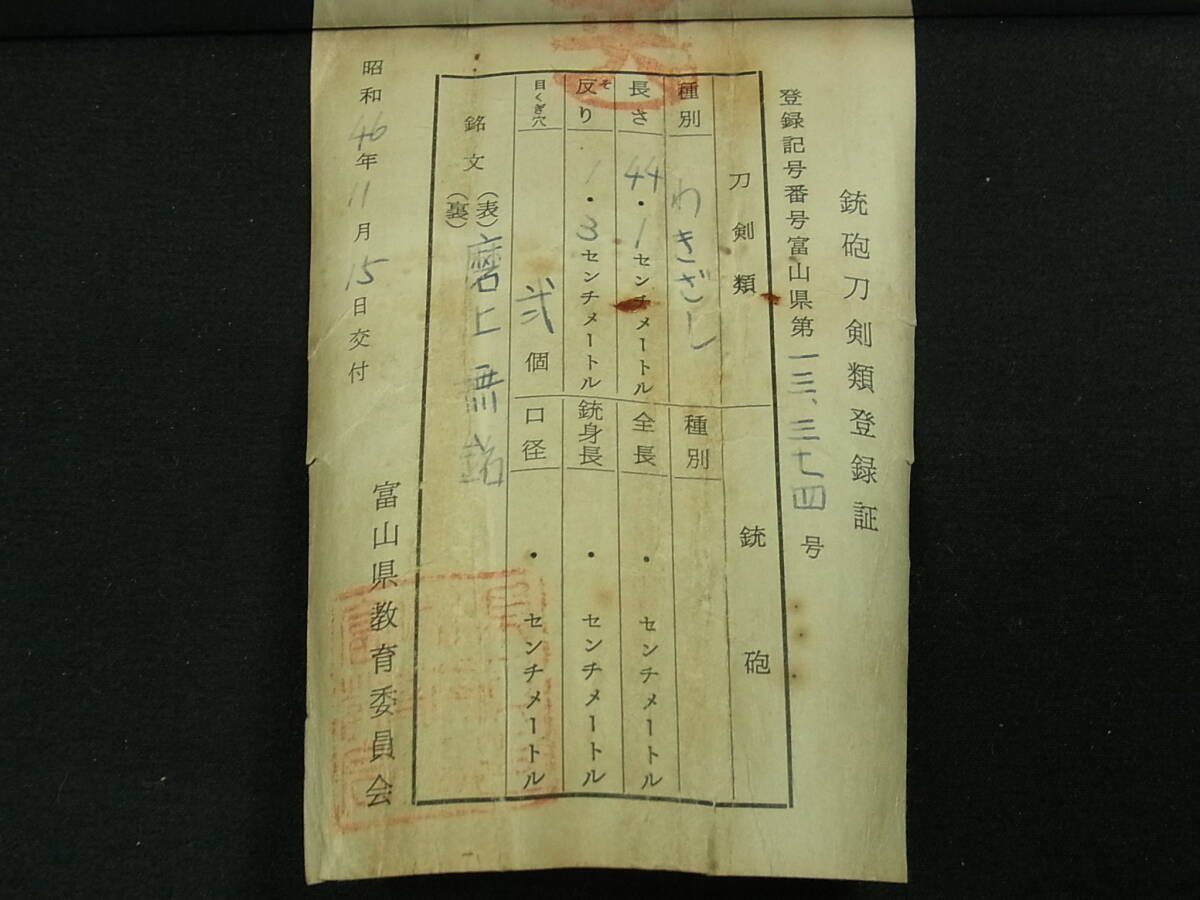 銃砲刀剣類登録証
登録記号番号富山県第一三、三七四号
刀剣類
種別 わきざし
長さ 44・1センチメートル
反り 1・3センチメートル
そ
目くぎ穴 弐個
銃砲
種別
全長 ・ センチメートル
銃身長 ・ センチメートル
口径 ・ センチメートル
銘文 (表) 磨上無銘
(裏)
昭和46年11月15日交付
富山県教育委員会